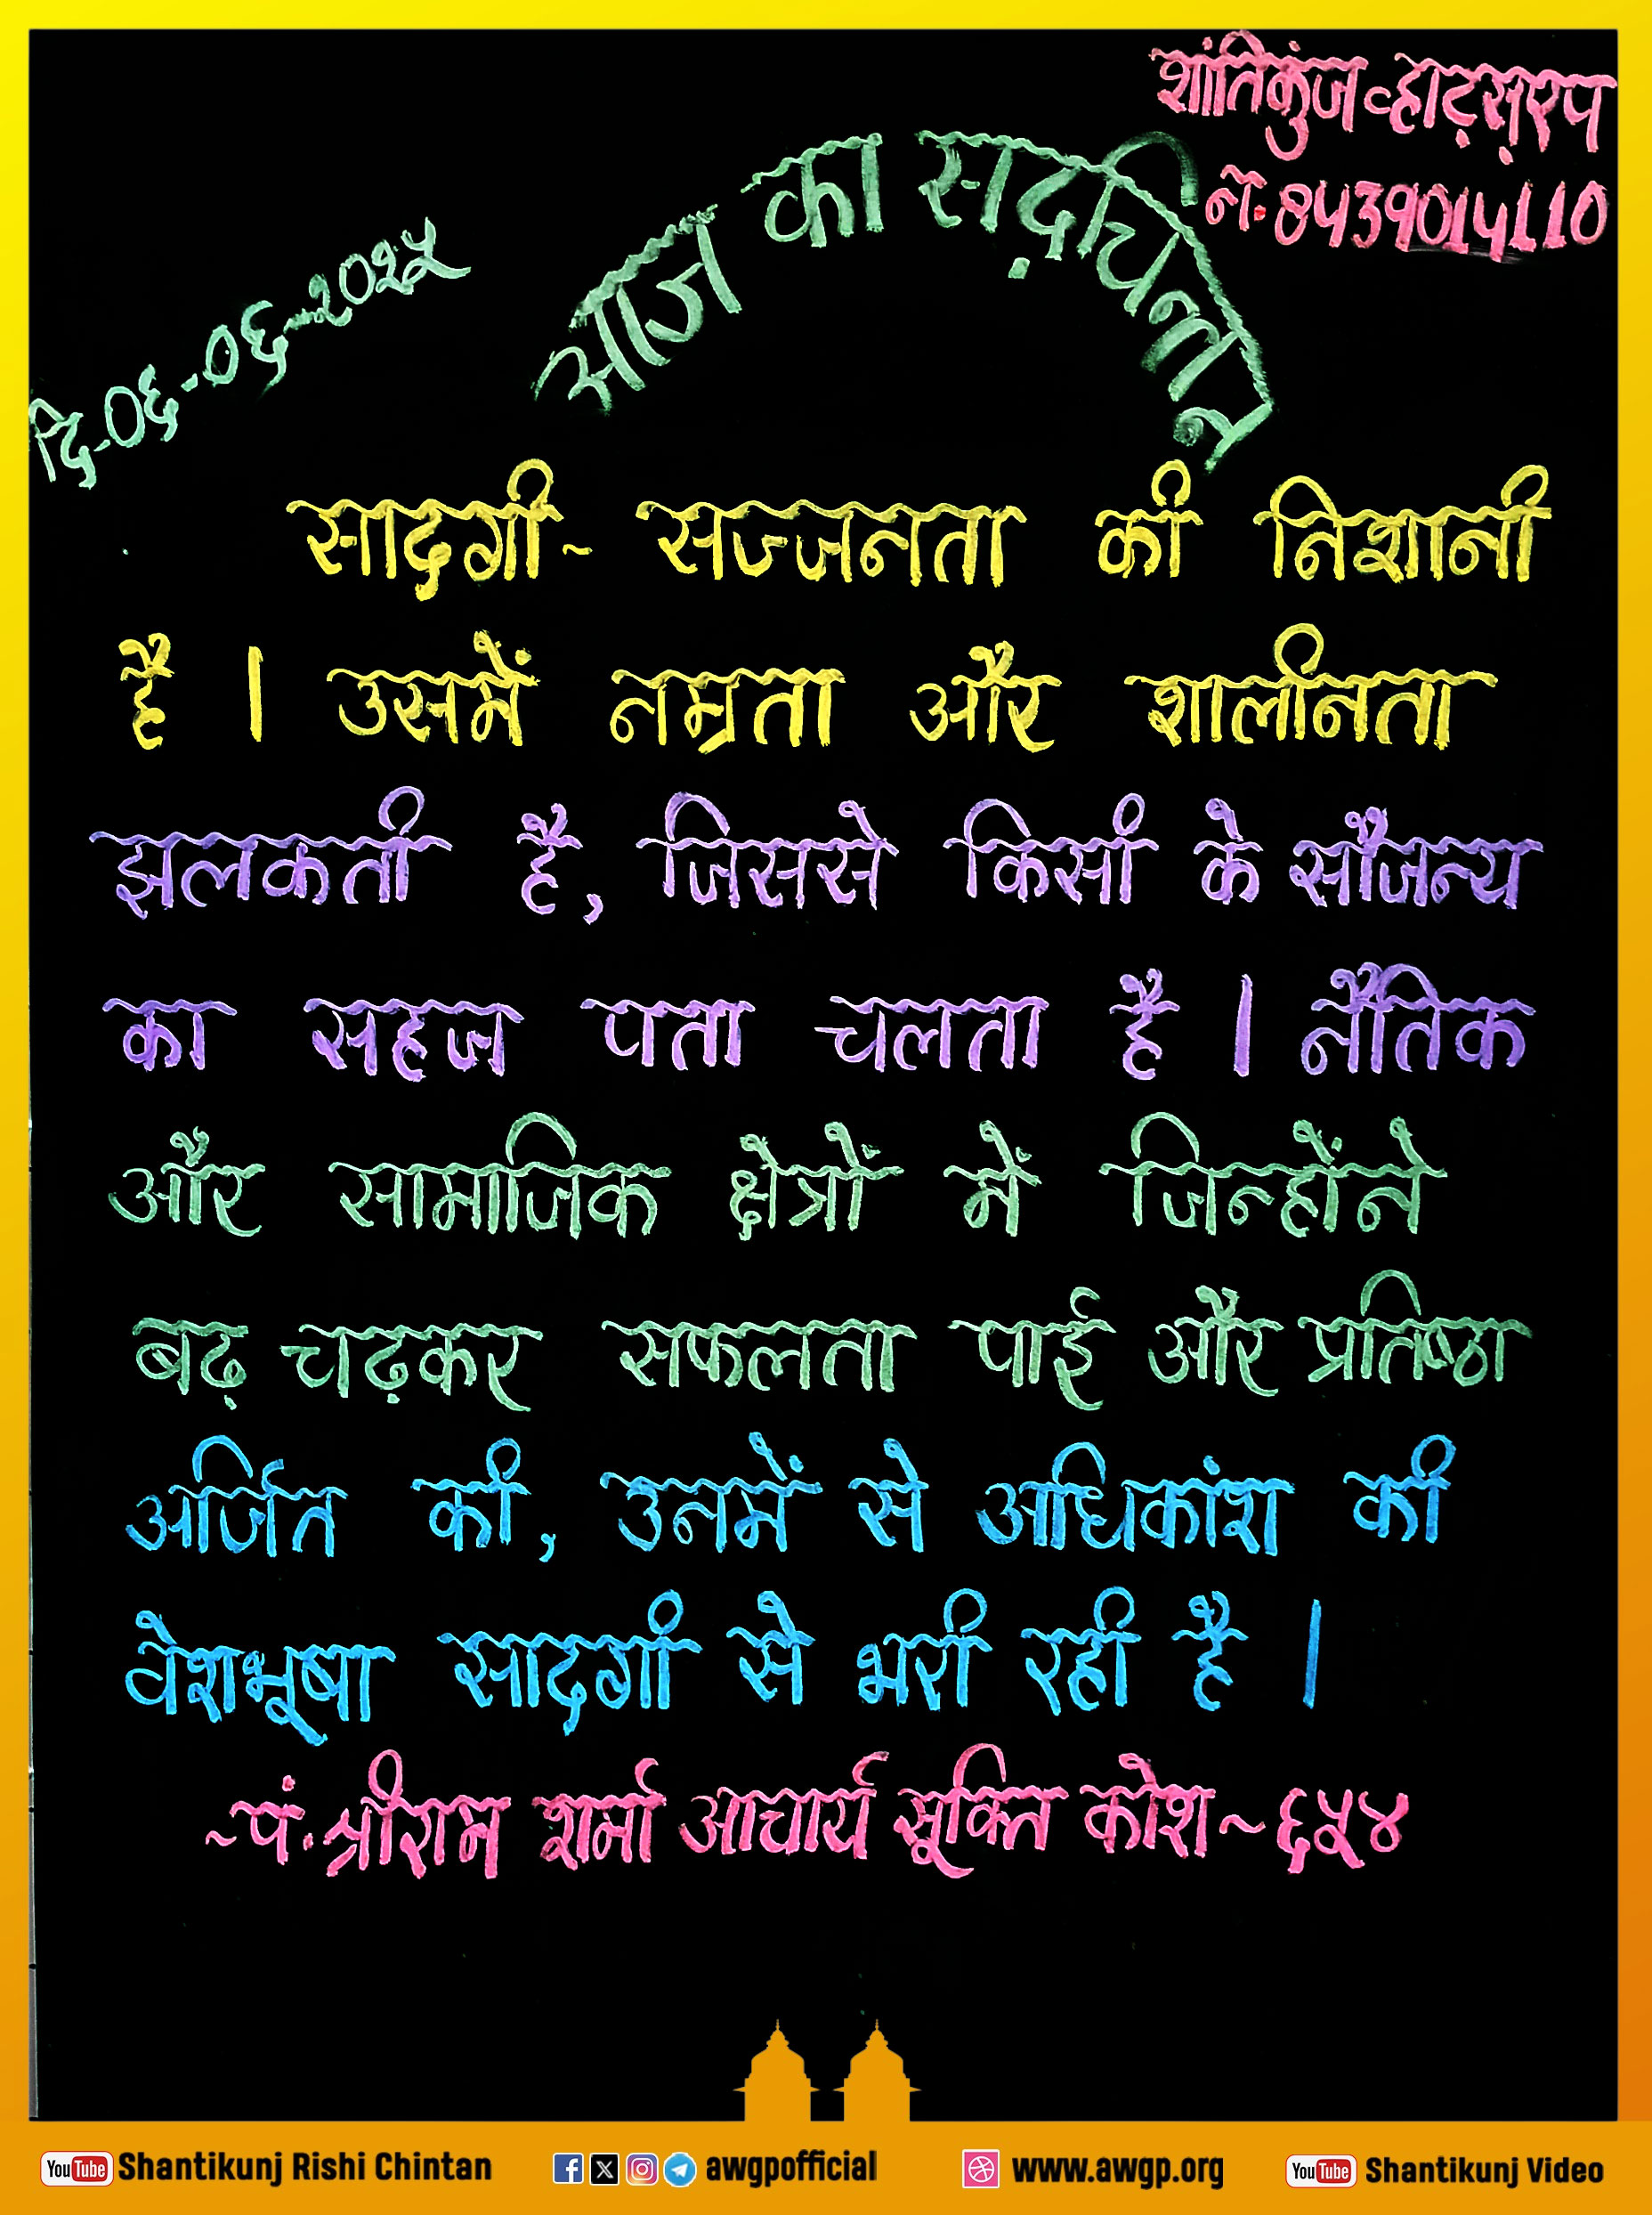 शांतिकुंज व्हाट्सएप
नं. 8439014110
आज का सद्चिन्तन
दि-०६-०६-२०२५
सादगी~ सज्जनता की निशानी
है । उसमें नम्रता और शालीनता
झलकती है, जिससे किसी के सौजन्य
का सहज पता चलता है । नैतिक
और सामाजिक क्षेत्रों में जिन्होंने
बढ़ चढ़कर सफलता पाई और प्रतिष्ठा
अर्जित की, उनमें से अधिकांश की
वेशभूषा सादगी से भरी रही है ।
~पं.श्रीराम शर्मा आचार्य सूक्ति कोश~६५४
YouTube Shantikunj Rishi Chintan awgpofficial www.awgp.org YouTube Shantikunj Video